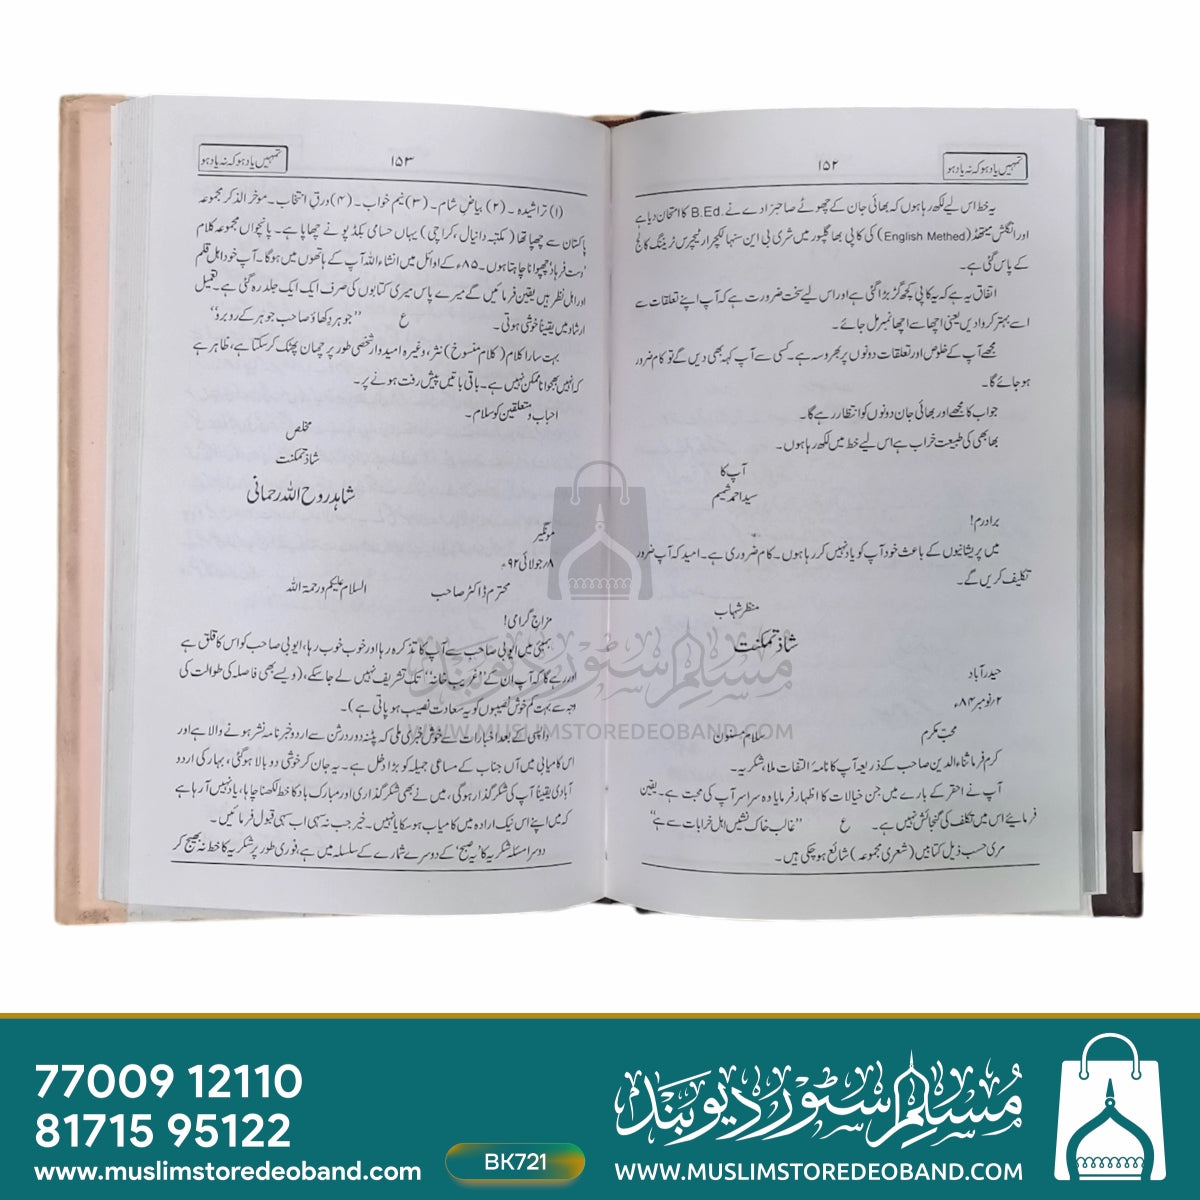 تمہیں یاد ہو کہ نہ یاد ہو
۱۵۲
یہ خط اس لیے لکھ رہا ہوں کہ بھائی جان کے چھوٹے صاحبزادے نے B.Ed. کا امتحان دیا ہے
اور انگلش میتھڈ (English Methed) کی کاپی بھاگلپور میں شری بی این سنہا لکچرار ٹیچرس ٹریننگ کالج
کے پاس گئی ہے۔
اتفاق یہ ہے کہ یہ کاپی کچھ گڑبڑا گئی ہے اور اس لیے سخت ضرورت ہے کہ آپ اپنے تعلقات سے
اسے بہتر کروا دیں یعنی اچھا سے اچھا نمبر مل جائے۔
مجھے آپ کے خلوص اور تعلقات دونوں پر بھروسہ ہے۔ کسی سے آپ کہہ بھی دیں گے تو کام ضرور
ہو جائے گا۔
جواب کا مجھے اور بھائی جان دونوں کو انتظار رہے گا۔
بھابھی کی طبیعت خراب ہے اس لیے خط میں لکھ رہا ہوں۔
آپ کا
سید احمد شمیم
برادرم!
میں پریشانیوں کے باعث خود آپ کو یاد نہیں کر رہا ہوں۔ کام ضروری ہے۔ امید کہ آپ ضرور
تکلیف کریں گے۔
منظر شہاب
شاذ تمکنت
حیدرآباد
۲؍نومبر ۸۴ء
محب مکرم
سلام مسنون
کرم فرما ثناءالدین صاحب کے ذریعہ آپ کا نامۂ التفات ملا، شکریہ۔
آپ نے احقر کے بارے میں جن خیالات کا اظہار فرمایا وہ سراسر آپ کی محبت ہے۔ یقین
فرمایئے اس میں تکلف کی گنجائش نہیں ہے۔ ع "غالب خاک نشیں اہل خرابات سے ہے"
مری حسب ذیل کتابیں (شعری مجموعہ) شائع ہو چکی ہیں۔
تمہیں یاد ہو کہ نہ یاد ہو
۱۵۳
(۱) تراشیدہ۔ (۲) بیاضِ شام۔ (۳) نیم خواب۔ (۴) ورقِ انتخاب۔ موخر الذکر مجموعہ
پاکستان سے چھپا تھا (مکتبہ دانیال، کراچی) یہاں حسامی بکڈپو نے چھاپا ہے۔ پانچواں مجموعہ کلام
'دست فرہاد' چھپوانا چاہتا ہوں۔ ۸۵ء کے اوائل میں انشاء اللہ آپ کے ہاتھوں میں ہوگا۔ آپ خود اہل قلم
اور اہل نظر ہیں یقین فرمائیں گے میرے پاس میری کتابوں کی صرف ایک ایک جلد رہ گئی ہے۔ تعمیل
ارشاد میں یقیناً خوشی ہوتی۔ ع "جوہر دکھاؤ صاحب جوہر کے روبرو"
بہت سارا کلام (کلام منسوخ) نثر، وغیرہ امیدوار شخصی طور پر چھان پھٹک کر سکتا ہے، ظاہر ہے
کہ انہیں بھجوانا ممکن نہیں ہے۔ باقی باتیں پیش رفت ہونے پر۔
احباب و متعلقین کو سلام۔
مخلص
شاذ تمکنت
شاہد روح اللہ رحمانی
مونگیر
۸؍جولائی ۹۲ء
محترم ڈاکٹر صاحب
السلام علیکم ورحمۃ اللہ
مزاج گرامی!
بمبئی میں ایوبی صاحب سے آپ کا تذکرہ رہا اور خوب خوب رہا، ایوبی صاحب کو اس کا قلق ہے
اور رہے گا کہ آپ اِن کے "غریب خانہ" تک تشریف نہیں لے جا سکے، (ویسے بھی فاصلہ کی طوالت کی
وجہ سے بہت کم خوش نصیبوں کو یہ سعادت نصیب ہو پاتی ہے)۔
واپسی کے بعد اخبارات سے خوش خبری ملی کہ پٹنہ دوردرشن سے اردو خبرنامہ نشر ہونے والا ہے اور
اس کامیابی میں آں جناب کے مساعی جمیلہ کو بڑا دخل ہے۔ یہ جان کر خوشی دوبالا ہو گئی، بہار کی اردو
آبادی یقیناً آپ کی شکر گذار ہوگی، میں نے بھی شکر گذاری اور مبارک باد کا خط لکھنا چاہا، یاد نہیں آ رہا ہے
کہ میں اپنے اس نیک ارادہ میں کامیاب ہو سکا یا نہیں۔ خیر جب نہ سہی اب سہی قبول فرمائیں۔
دوسرا مسئلہ شکریہ کا 'یہ صبح' کے دوسرے شمارے کے سلسلہ میں ہے، فوری طور پر شکریہ کا خط نہ بھیج کر
مسلم سٹور دیوبند
WWW.MUSLIMSTOREDEOBAND.COM
77009 12110
81715 95122
www.muslimstoredeoband.com
BK721
مسلم سٹور دیوبند
WWW.MUSLIMSTOREDEOBAND.COM